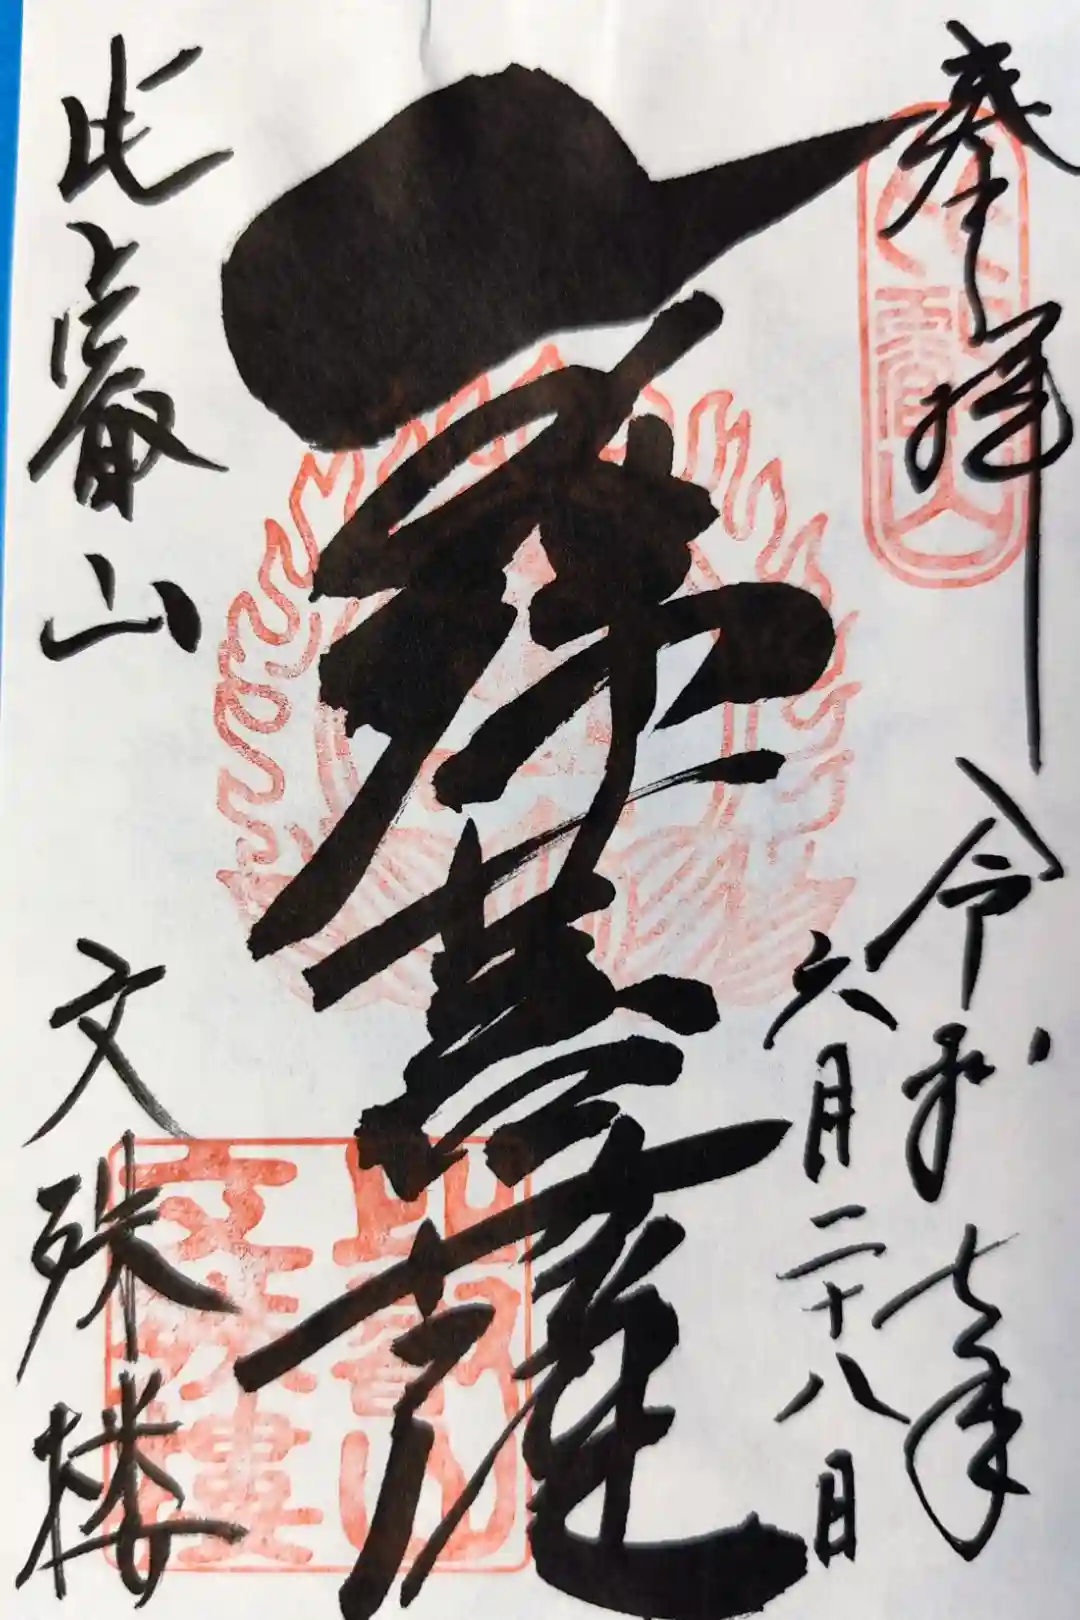 奉拝
令和七年
六月二十八日
文殊菩薩
比叡山 文殊楼
比叡山
文殊樓